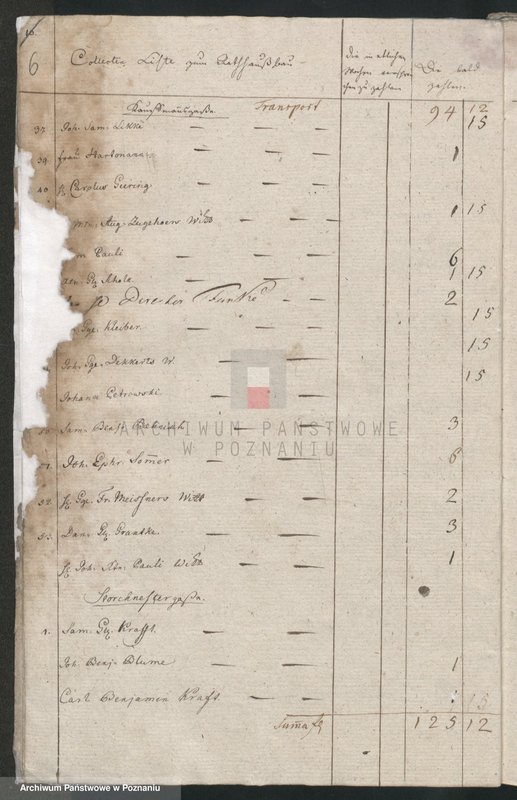 6 Collecten Liste zum Rathhaußbau
die in etlichen Wochen zu zahlen
Die bald zahlen
Kauffmansgaße Transport 94 12
37. Joh. Sam. Likke — — 15
39. Frau Hartmann — — 1
40. H Carolus Giering — —
Aug. Zugehoers Witt — — 1 15
Pauli — — 6
Gl. Scholz — — 1 15
H Director Funke — 2
Gge. Kleiber — — 15
Joh. Gge. Dekkerts W. — — 15
Johann Petrowski — — 15
Sam. Benj. — — 3
51. Joh. Ephr. Sommer — — 6
52. H Gge. Fr. Meissners Witt — — 2
53. Dan. Gl. — — 3
H Joh. Pauli Witt — — 1
Storchnestergaße.
1. Sam. Gl. Krafft. — —
Joh. Benj. Blume — — 1
Carl Benjamin Kraft — — 15
Summa 125 12
ARCHIWUM PAŃSTWOWE
W POZNANIU
Archiwum Państwowe w Poznaniu